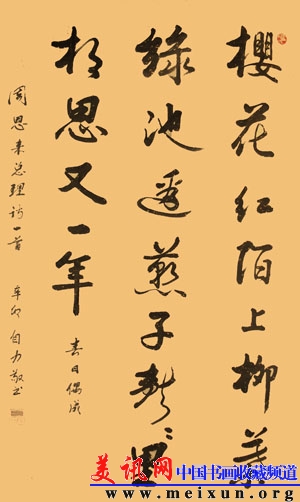 樱花红陌上柳叶
绿池边燕子声々里
相思又一年
春日偶成
周恩来总理诗一首
辛卯自力敬书
美讯网
中国书画收藏频道
www.meixun.org